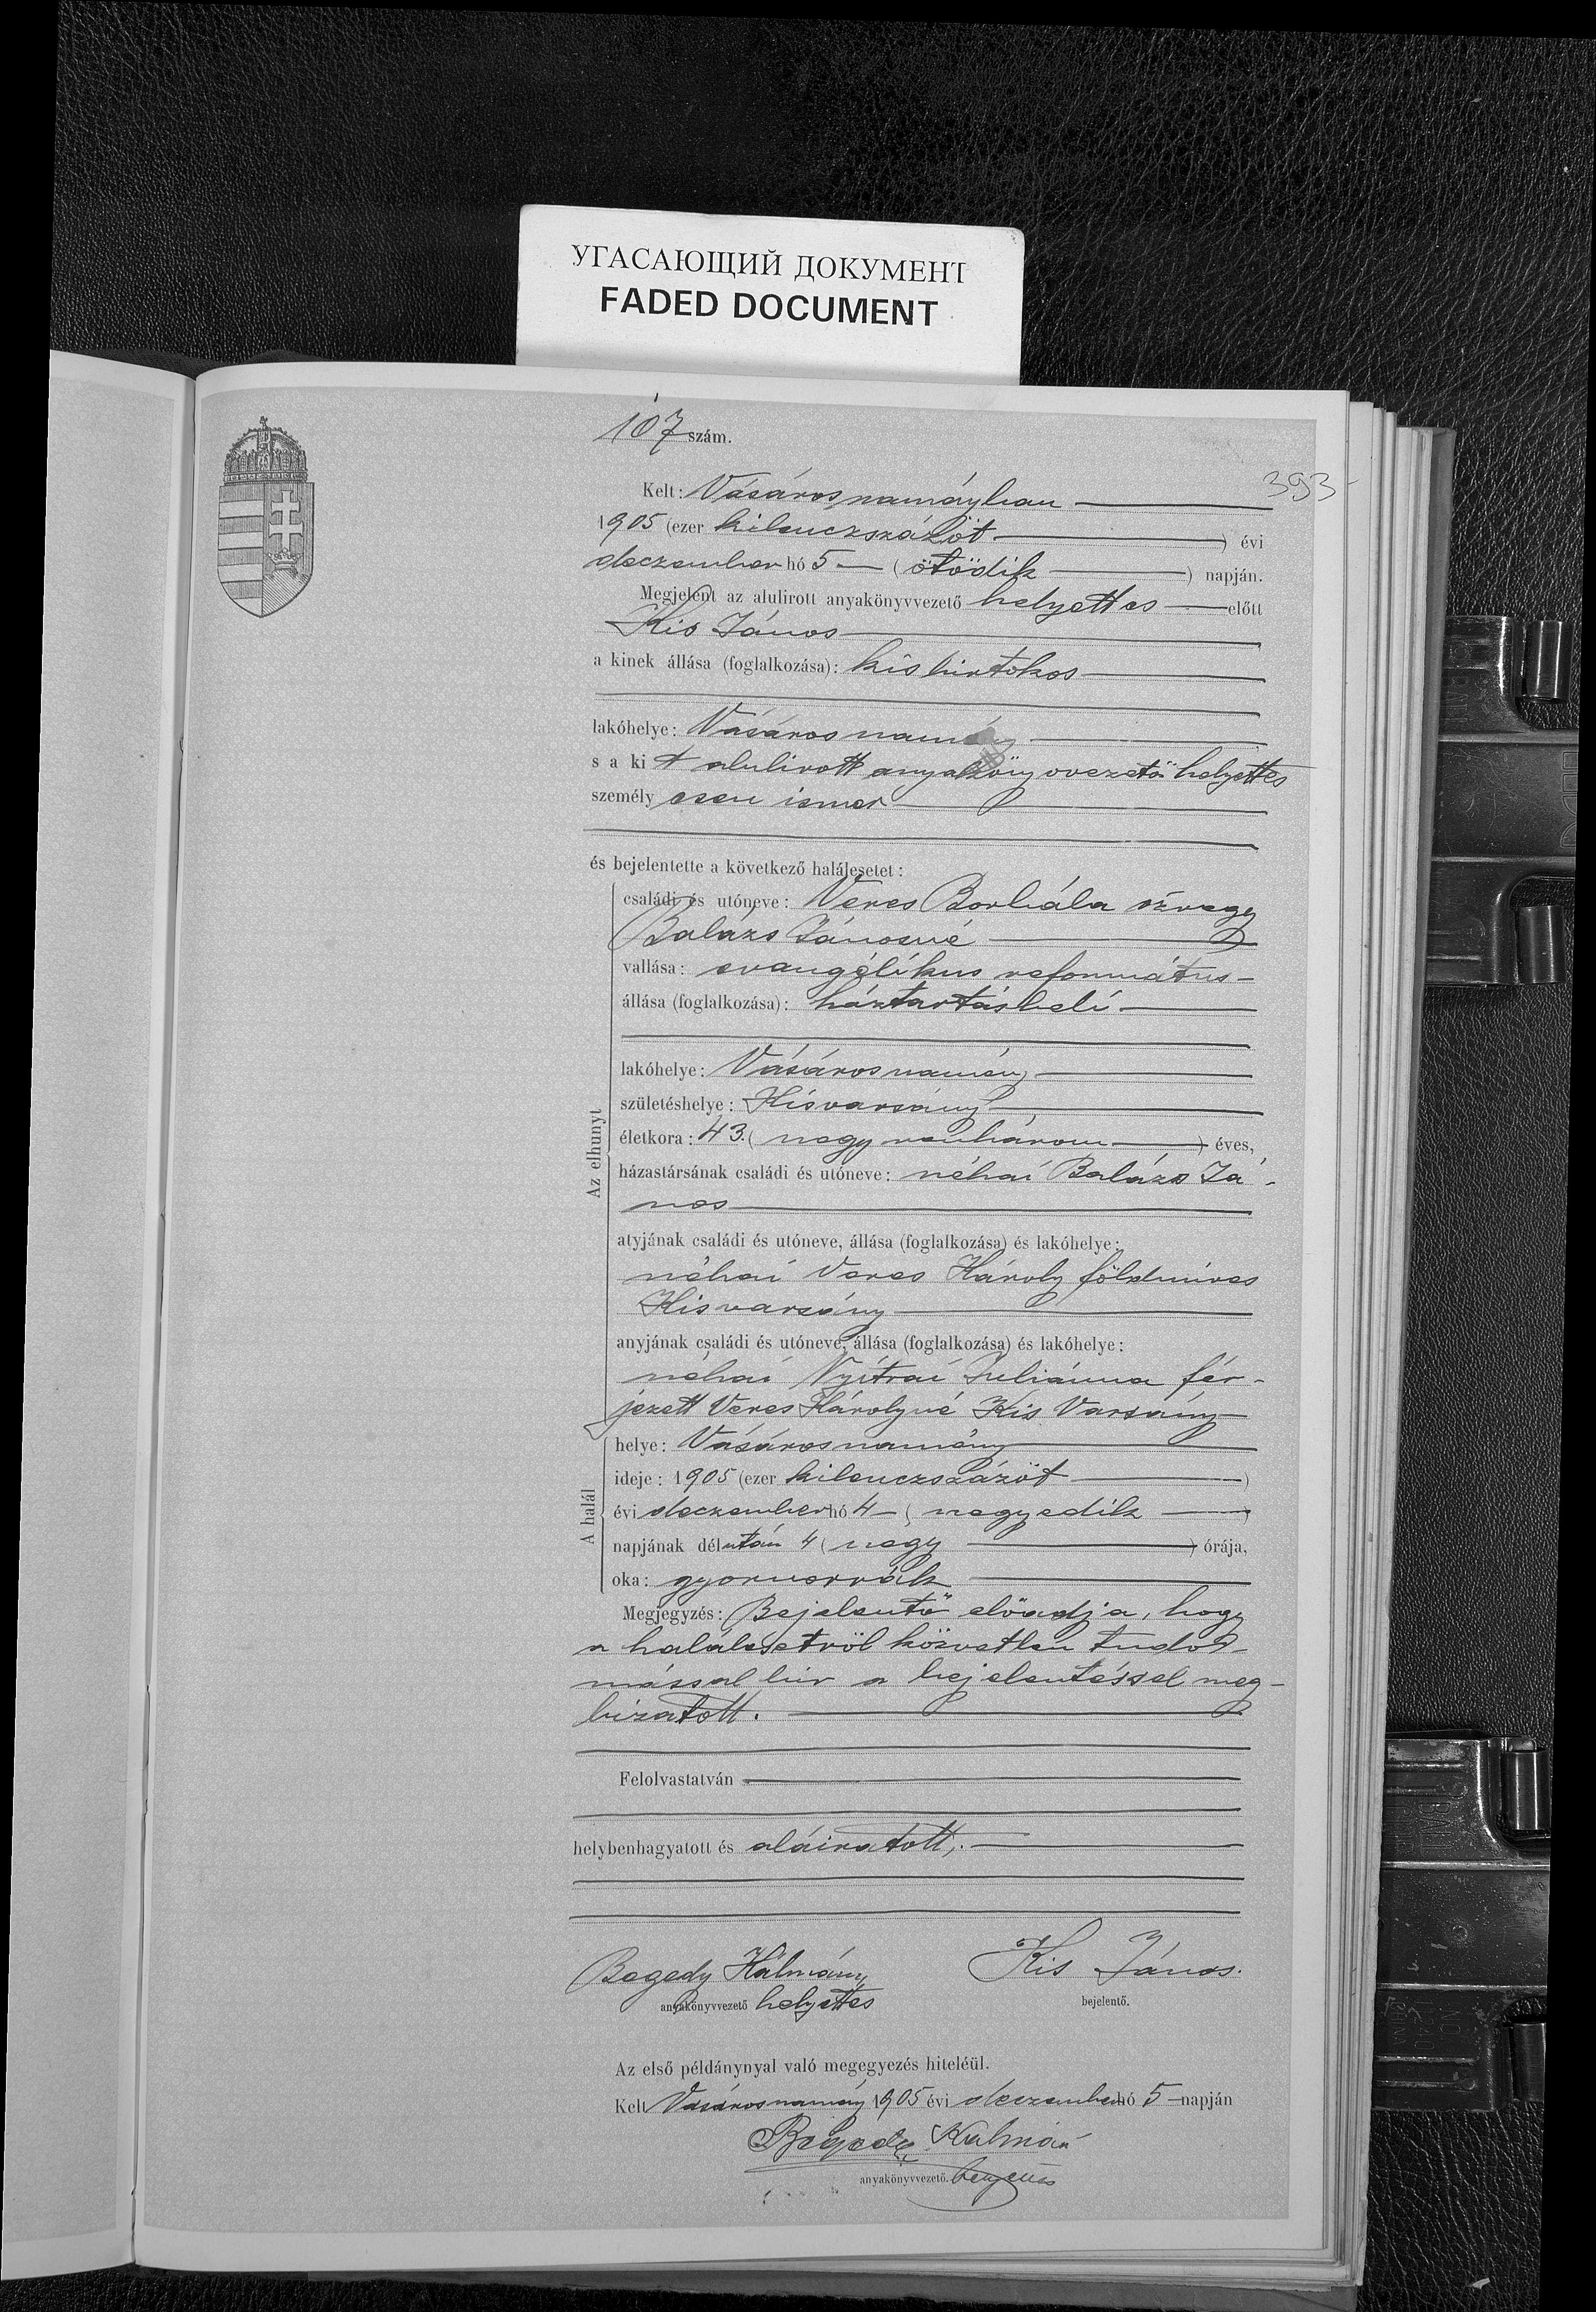 УГАСАЮЩИЙ ДОКУМЕНТ
FADED DOCUMENT
107 szám.
393
Kelt: Vásárosnaményban
1905 (ezer kilenczszázöt ) évi
deczember hó 5 — (ötödik ) napján.
Megjelent az alulirott anyakönyvvezető helyettes előtt
Kis János
a kinek állása (foglalkozása): kisbirtokos
lakóhelye: Vásárosnamény
s a kit alulirott anyakönyvvezető helyettes
személyesen ismer
és bejelentette a következő halálesetet:
családi és utóneve: Veres Borbála özvegy
Balázs Jánosné
vallása: evangélikus református
állása (foglalkozása): háztartásbeli
lakóhelye: Vásárosnamény
születéshelye: Kisvarsány
Az elhunyt
életkora: 43. (negyvenhárom ) éves,
házastársának családi és utóneve: néhai Balázs Já-
nos
atyjának családi és utóneve, állása (foglalkozása) és lakóhelye:
néhai Veres Károly földmíves
Kisvarsány
anyjának családi és utóneve, állása (foglalkozása) és lakóhelye:
néhai Nyitrai Juliánna fér-
jezett Veres Károlyné Kis Varsány
A halál
helye: Vásárosnamény
ideje: 1905 (ezer kilenczszázöt )
évi deczember hó 4 — (negyedik )
napjának délután 4 (négy ) órája,
oka: gyomorrák
Megjegyzés: Bejelentő előadja, hogy
a halálesetről közvetlen tudo-
mással bir a bejelentéssel meg-
bizatott.
Felolvastatván
helybenhagyatott és aláiratott,.
Begedy Kálmán Kis János.
anyakönyvvezető helyettes bejelentő.
Az első példánynyal való megegyezés hiteléül.
Kelt Vásárosnamény 1905 évi deczember hó 5 napján
Begedy Kálmán
anyakönyvvezető. helyettes